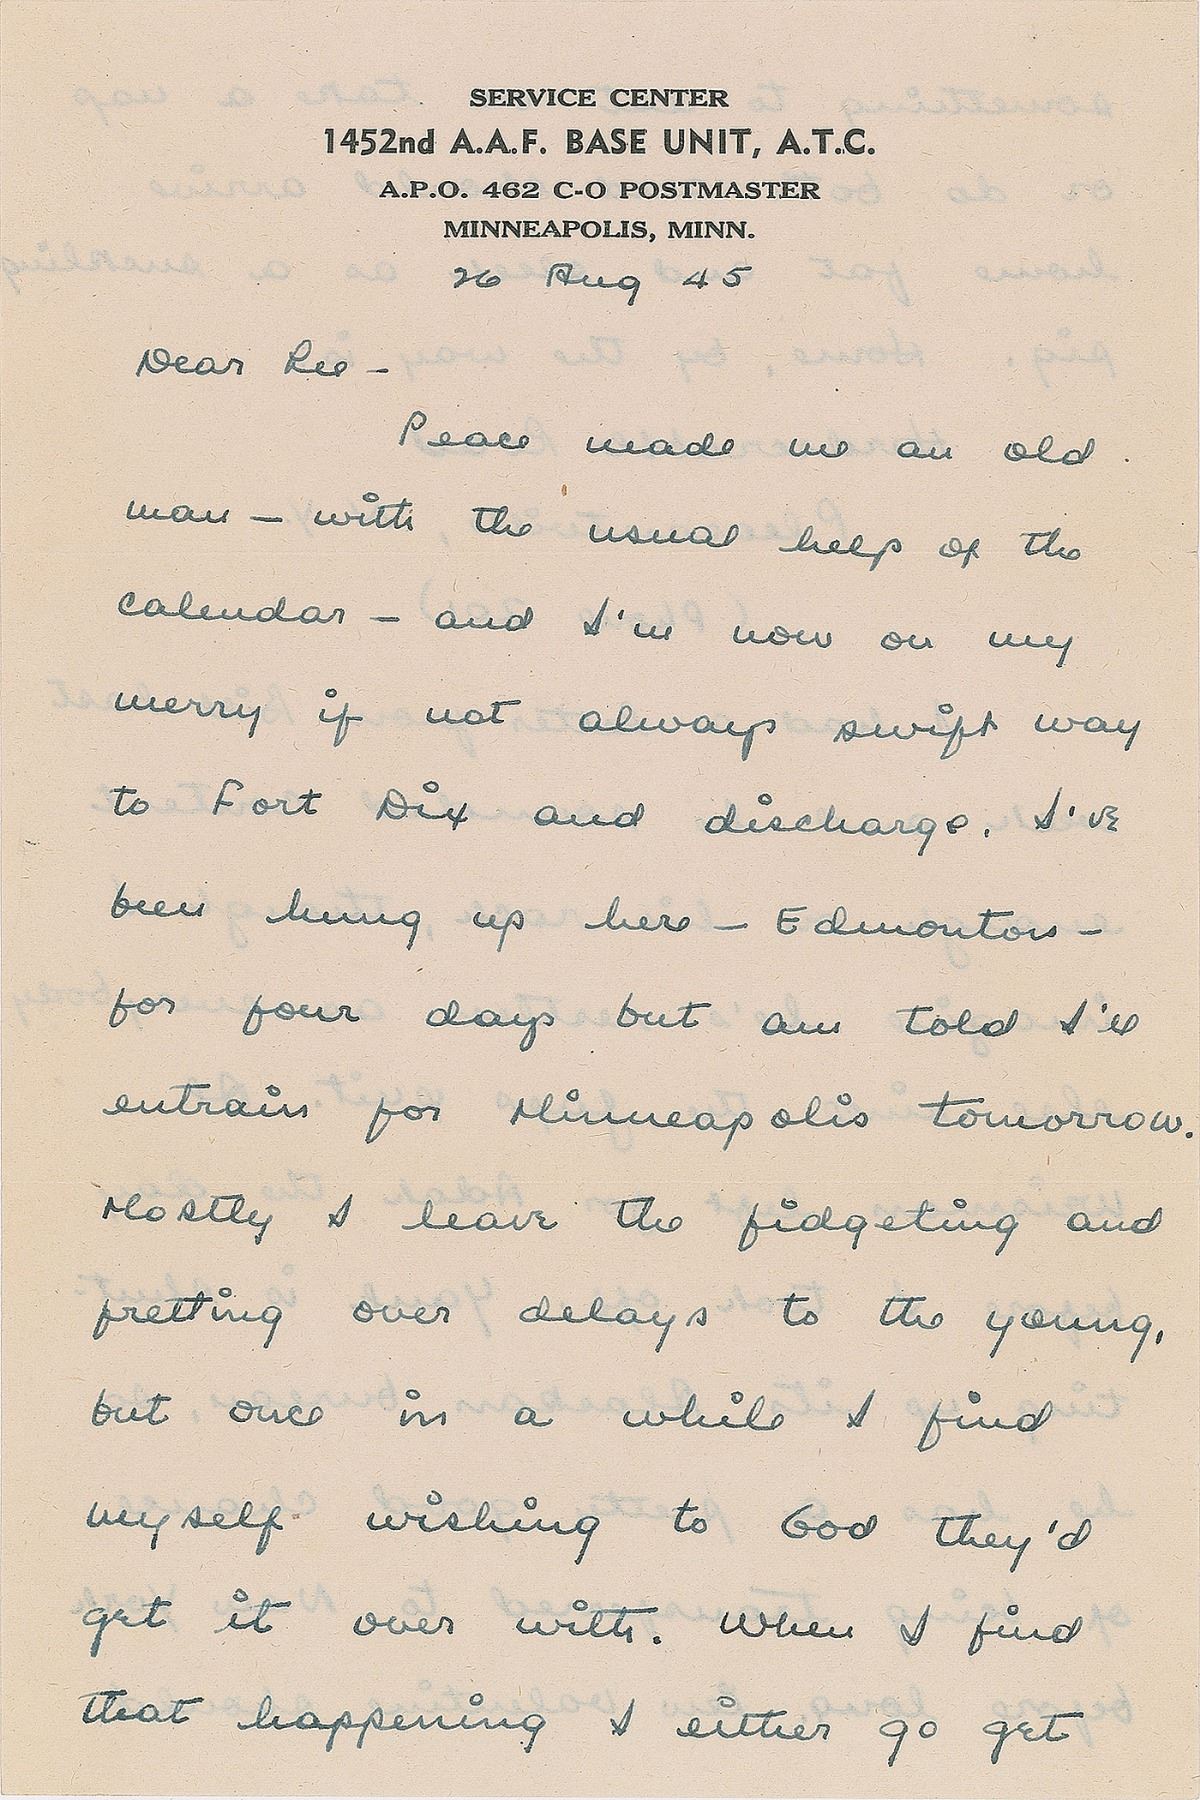 SERVICE CENTER
1452nd A.A.F. BASE UNIT, A.T.C.
A.P.O. 462 C-O POSTMASTER
MINNEAPOLIS, MINN.
26 Aug 45
Dear Lee —
Peace made me an old
man — with the usual help of the
calendar — and I'm now on my
merry if not always swift way
to Fort Dix and discharge. I've
been hung up here — Edmonton —
for four days but am told I'll
entrain for Minneapolis tomorrow.
Mostly I leave the fidgeting and
fretting over delays to the young,
but once in a while I find
myself wishing to God they'd
get it over with. When I find
that happening I either go get